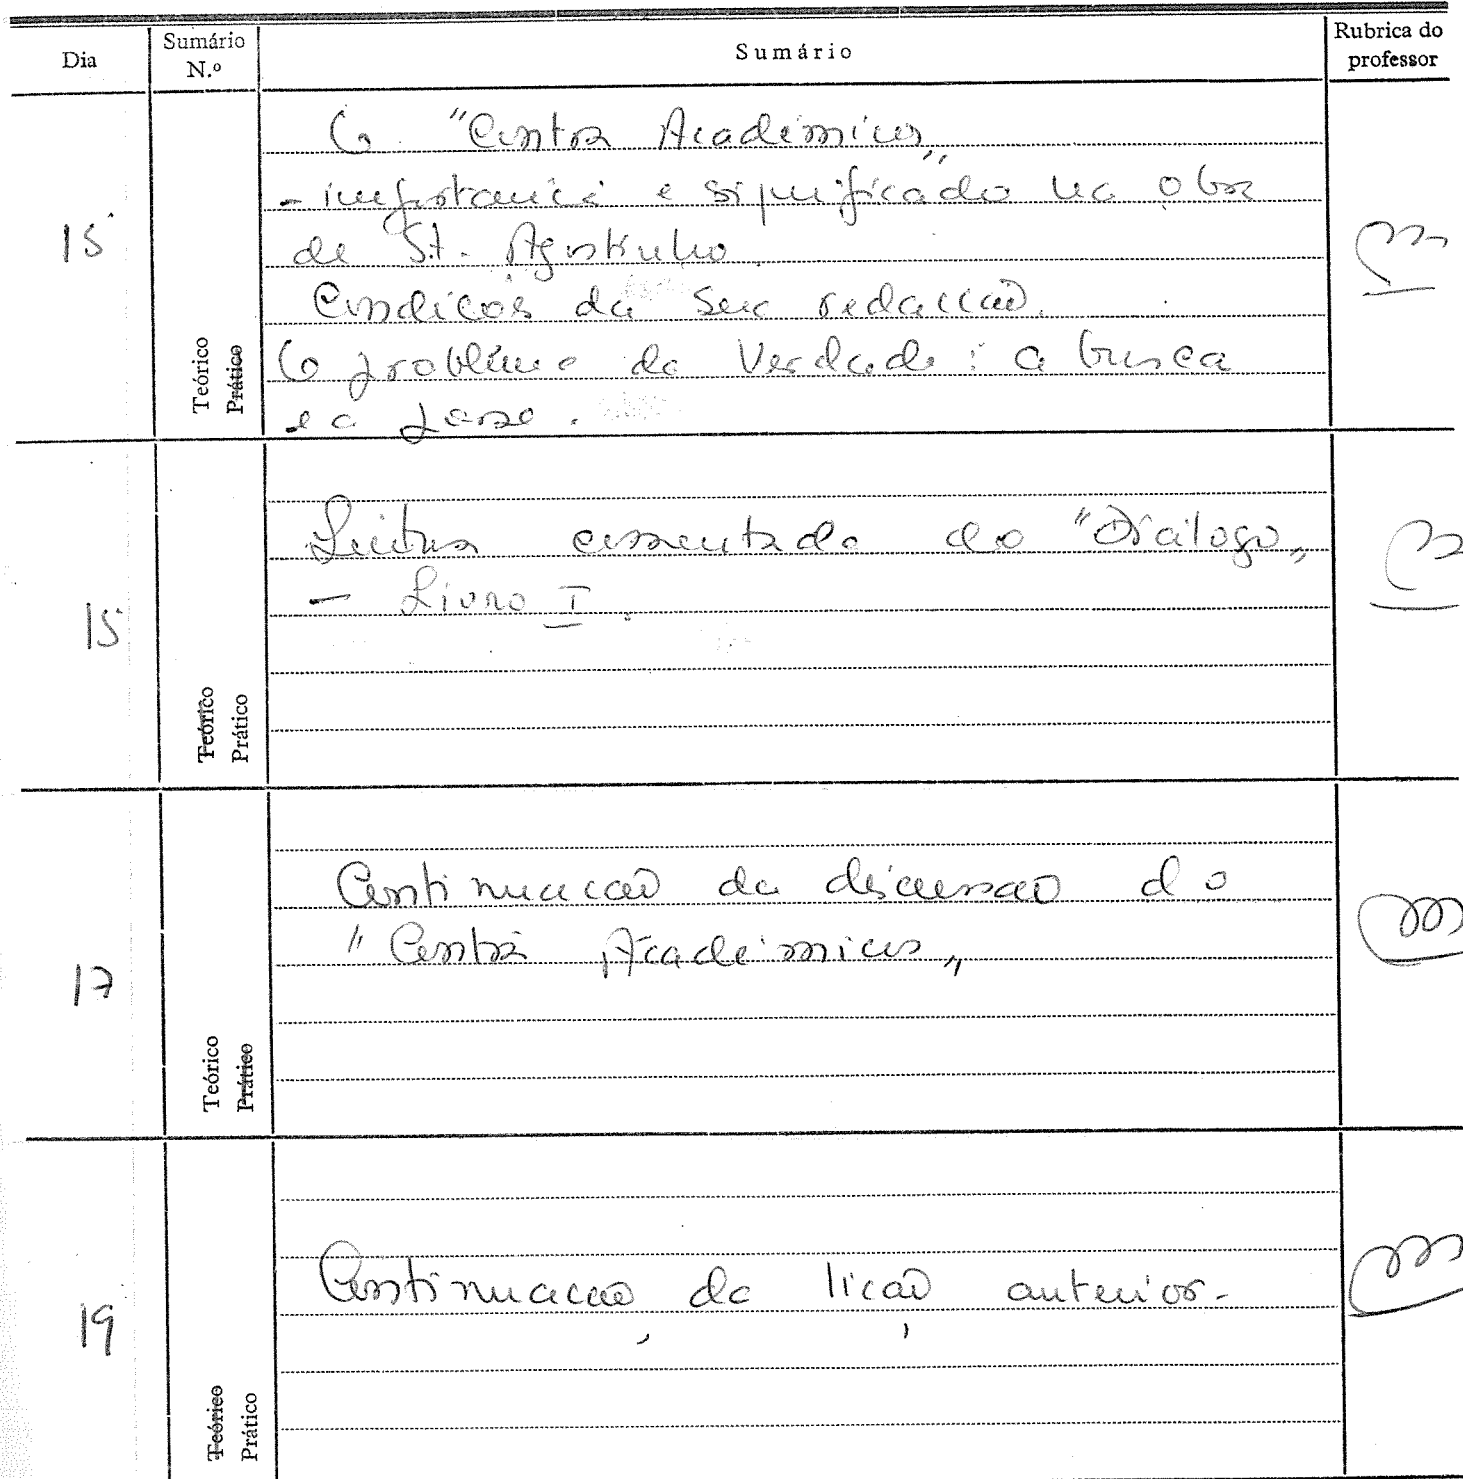 Dia
Sumário N.º
Sumário
Rubrica do professor
15
Teórico
Prático
O "Contra Académicos"
- importância e significado na obra
de St. Agostinho.
Condições da sua redacção.
O problema da Verdade: a busca
e a posse.
15
Teórico
Prático
Leitura comentada do "Diálogo"
- Livro I.
17
Teórico
Prático
Continuação da discussão do
"Contra Académicos"
19
Teórico
Prático
Continuação da lição anterior.